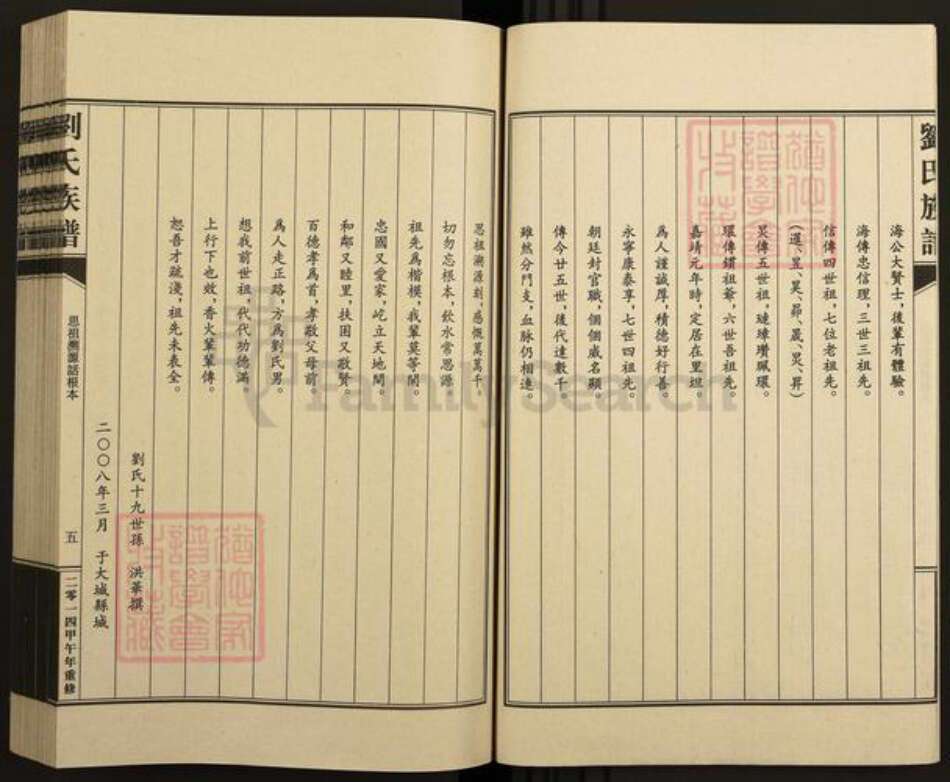 劉氏族譜
海公大賢士，後輩有體驗。
海傳忠信理，三世三祖先。
信傳四世祖，七位老祖先。
（暹、昱、昊、昴、晟、炅、昇）
昊傳五世祖，璉璋瓚珮環。
環傳鑽祖爺，六世吾祖先。
嘉靖元年時，定居在里坦。
爲人謹誠厚，積德好行善。
永寧康泰享，七世四祖先。
朝廷封官職，個個威名顯。
傳今廿五世，後代達數千。
雖然分門支，血脉仍相連。
思祖溯源刻，感慨萬萬千。
切勿忘根本，飲水常思源。
祖先爲楷模，我輩莫等閑。
忠國又愛家，屹立天地間。
和鄰又睦里，扶困又敬賢。
百德孝爲首，孝敬父母前。
爲人走正路，方爲劉氏男。
想我前世祖，代代功德滿。
上行下也效，香火輩輩傳。
恕吾才疏淺，祖先未表全。
劉氏十九世孫　洪華撰
二〇〇八年三月　于大城縣城
劉氏族譜
思祖溯源話根本
五
二零一四甲午年重修
FamilySearch